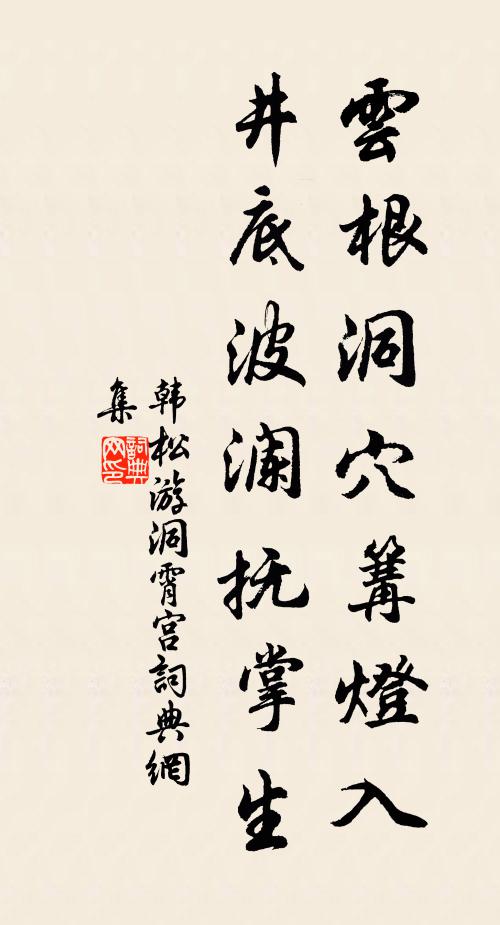 雲根洞穴篝燈入
井底波瀾抚掌生
韩松游洞霄宫詞典網
集
詞典網印